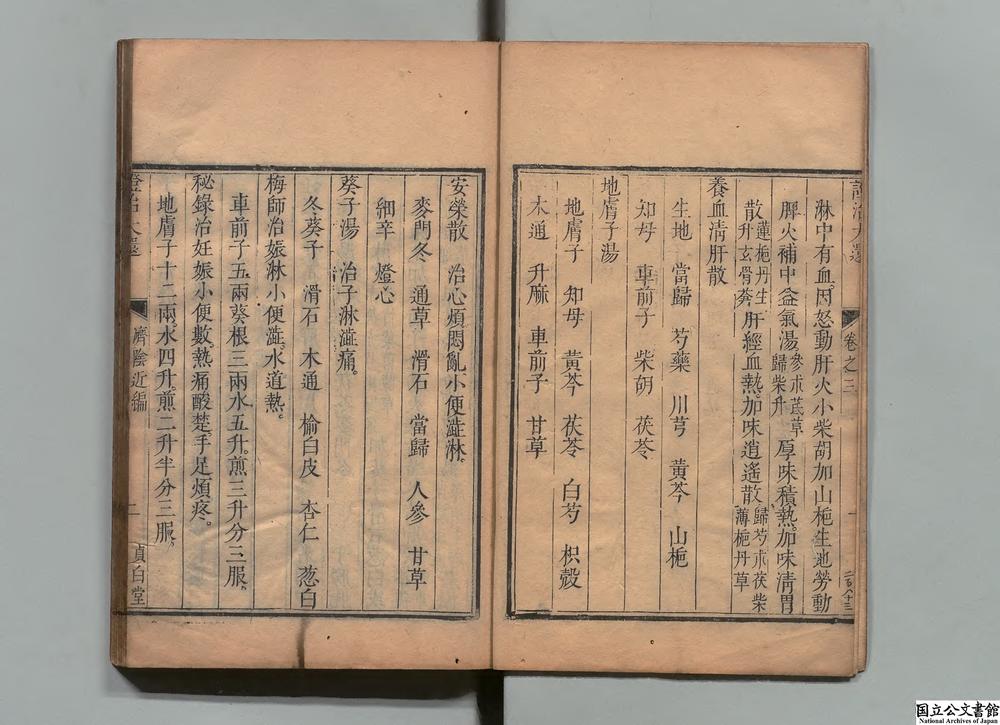 淋中有血。因怒動肝火小柴胡加山梔生地勞動
脾火補中益氣湯參朮芪草歸柴升厚味積熱。加味清胃
散蓮梔丹生升玄骨荞肝經血熱。加味逍遙散歸芍朮茯柴薄梔丹草
養血清肝散
生地 當歸 芍藥 川芎 黃芩 山梔
知母 車前子 柴胡 茯苓
地膚子湯
地膚子 知母 黃芩 茯苓 白芍 枳殼
木通 升麻 車前子 甘草
卷之三
安榮散 治心煩悶亂小便澁淋。
麥門冬 通草 滑石 當歸 人參 甘草
細辛 燈心
葵子湯 治子淋澁痛。
冬葵子 滑石 木通 榆白皮 杏仁 葱白
梅師治娠淋小便澁。水道熱。
車前子五兩葵根三兩水五升。煎三升分三服。
秘錄治妊娠小便數。熱痛酸楚。手足煩疼。
地膚子十二兩。水四升。煎二升半分三服。
證治大還 濟陰近編 二 貞白堂
国立公文書館
National Archives of Japan